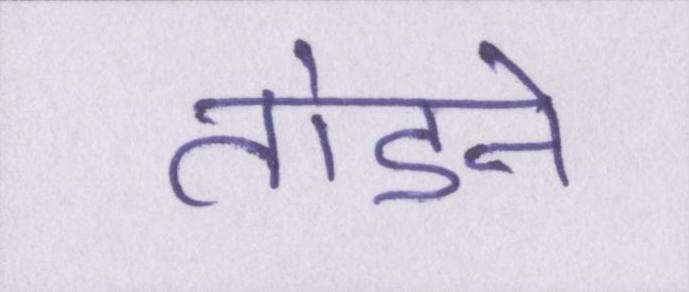 तोड़ने